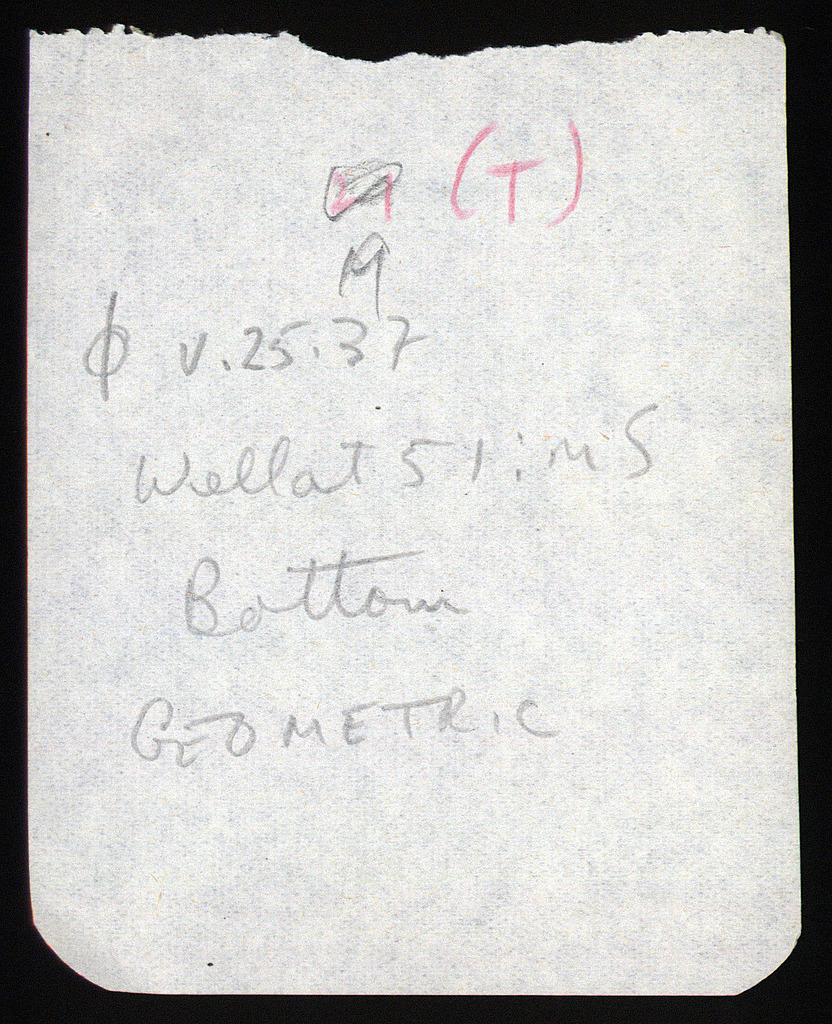 (T)
M
φ v.25.37
Well at 51:M5
Bottom
GEOMETRIC